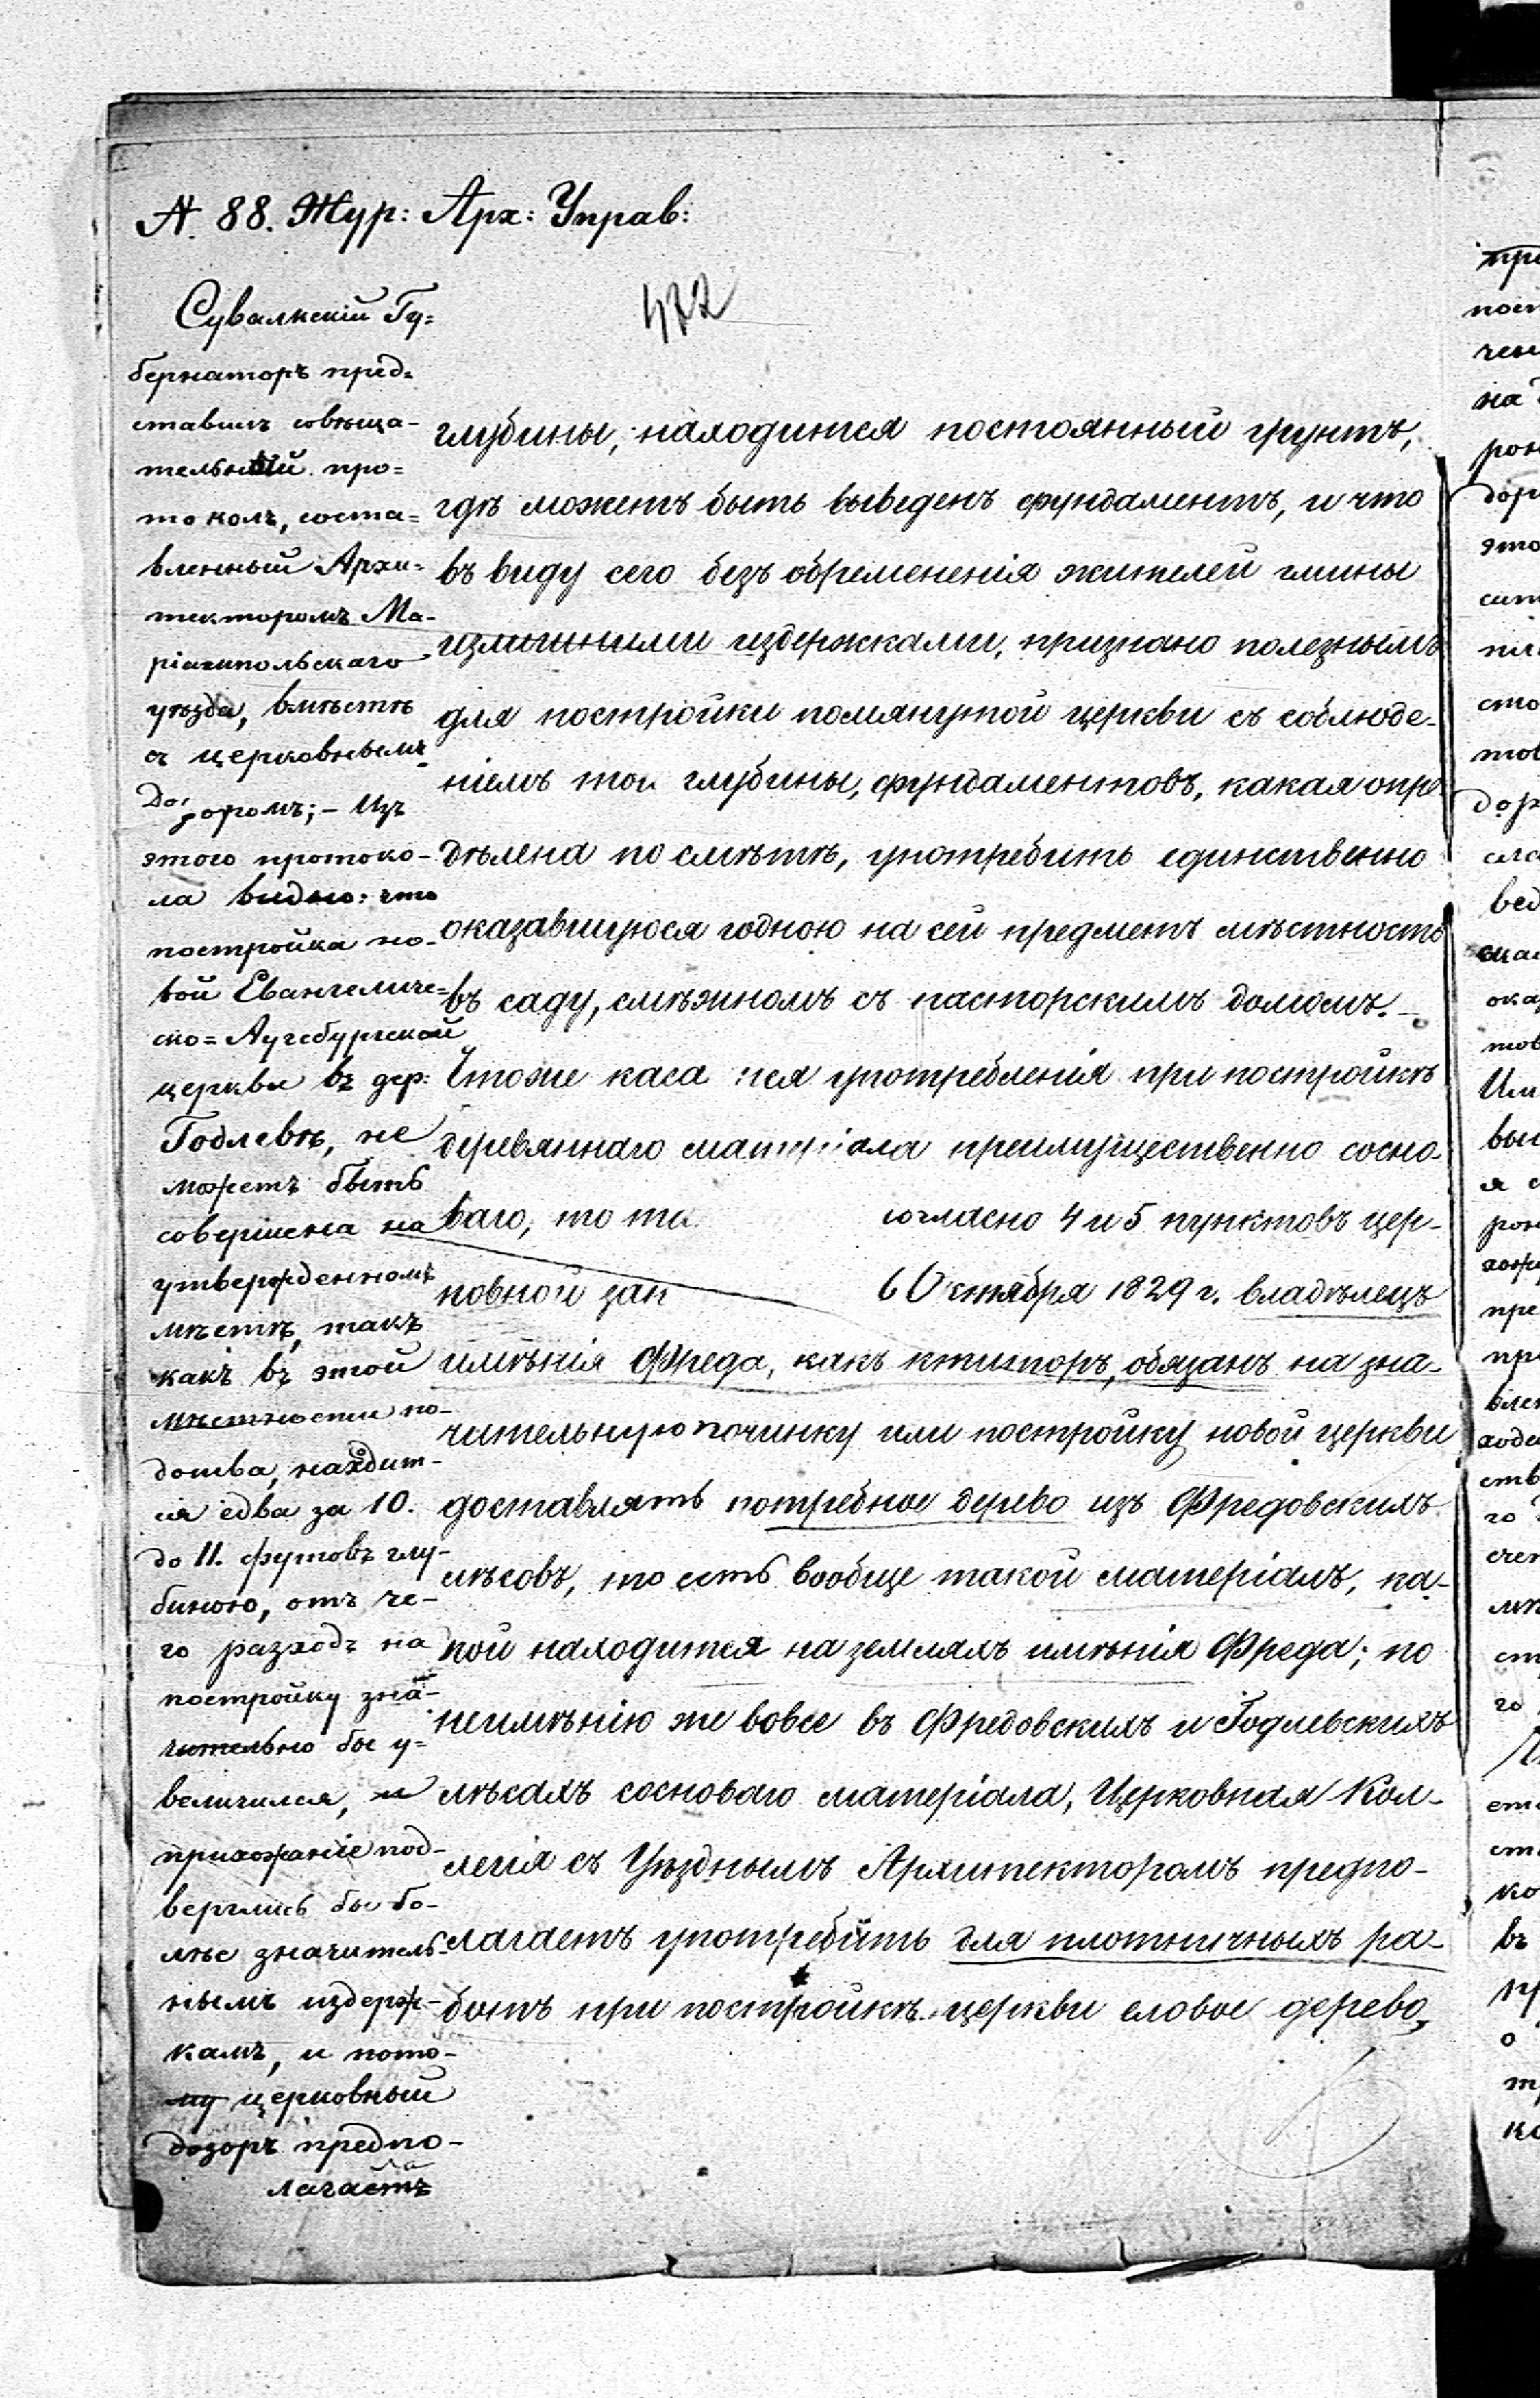 № 88. Жур: Арх: Управ:
472
Сувалкскій Гу=
бернаторъ пред=
ставилъ совѣща-
тельный про=
токолъ, соста=
вленный Архи=
текторомъ Ма-
ріампольскаго
уѣзда, вмѣстѣ
съ церковнымъ
Дозоромъ; – Изъ
этого протоко-
ла видно: что
постройка но-
вой Евангеличе=
ско=Аугсбургской
церкви въ дер:
Годлевѣ, не
можетъ быть
совершена на
утвержденномъ
мѣстѣ, такъ
какъ въ этой
мѣстности по-
дошва, находит-
ся едва за 10.
до 11. футовъ глу-
биною, отъ че-
го разходъ на
постройку зна-
чительно бы у=
величился, и
прихожаніе под-
верглись бы бо-
лѣе значитель-
нымъ издерж-
камъ, и пото-
му церковный
дозоръ предпо-
лагаетъ
глубины, находится постоянный грунтъ,
гдѣ можетъ быть выведенъ фундаментъ, и что
въ виду сего безъ обремененія жителей гмины
излишними издержками, признано полезнымъ
для постройки помянутой церкви съ соблюде-
ніемъ той глубины, фундаментовъ, какая опре
дѣлена по смѣтѣ, употребить единственно
оказавшуюся годною на сей предметъ мѣстность
въ саду, смѣжномъ съ пасторскимъ домомъ. –
Чтоже каса тся употребленія при постройкѣ
деревяннаго матеріала преимущественно сосно-
ваго, то та согласно 4 и 5 пунктовъ цер-
ковной зап 6 Октября 1829 г. владѣлецъ
имѣнія Фреда, какъ ктиторъ, обязанъ на зна-
чительную починку или постройку новой церкви
доставлять потребное дерево изъ Фредовскихъ
лѣсовъ, то есть вообще такой матеріалъ, ка-
кой находится на земляхъ имѣнія Фреда; по
неимѣнію же вовсе въ Фредовскихъ и Годлевскихъ
лѣсахъ сосноваго матеріала, Церковная Кол-
легія съ Уѣзднымъ Архитекторомъ предпо-
лагаетъ употребить для плотничныхъ ра-
ботъ при постройкѣ церкви еловое дерево,